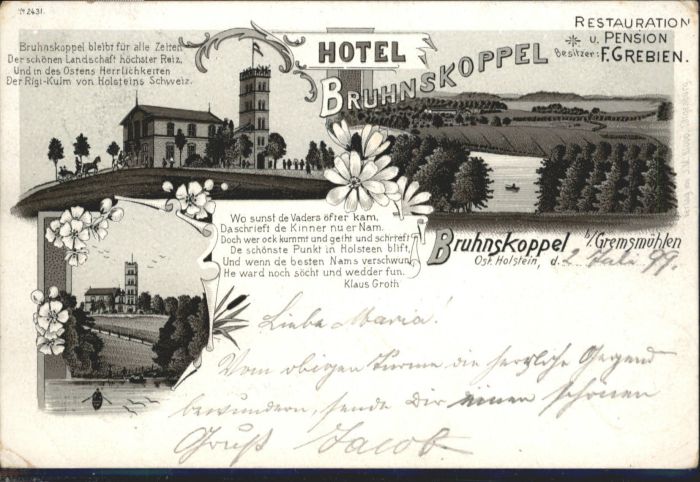 № 2431.
RESTAURATION
u. PENSION
Besitzer: F. GREBIEN.
HOTEL
BRUHNSKOPPEL
Bruhnskoppel bleibt für alle Zeiten
Der schönen Landschaft höchster Reiz,
Und in des Ostens Herrlichkeiten
Der Rigi-Kulm von Holsteins Schweiz.
Wo sunst de Vaders öfter kam,
Da schrieft de Kinner nu er Nam.
Doch wer ock kummt und geiht und schrieft
De schönste Punkt in Holsteen blift,
Und wenn de besten Nams verschwun,
He ward noch söcht und wedder fun.
Klaus Groth
Bruhnskoppel b/Gremsmühlen
Ost. Holstein, d. 2 Juli 99.
Liebe Maria!
Vom obigen Turme die herrliche Gegend
bewundern, sende Dir einen schönen
Gruß Jacob